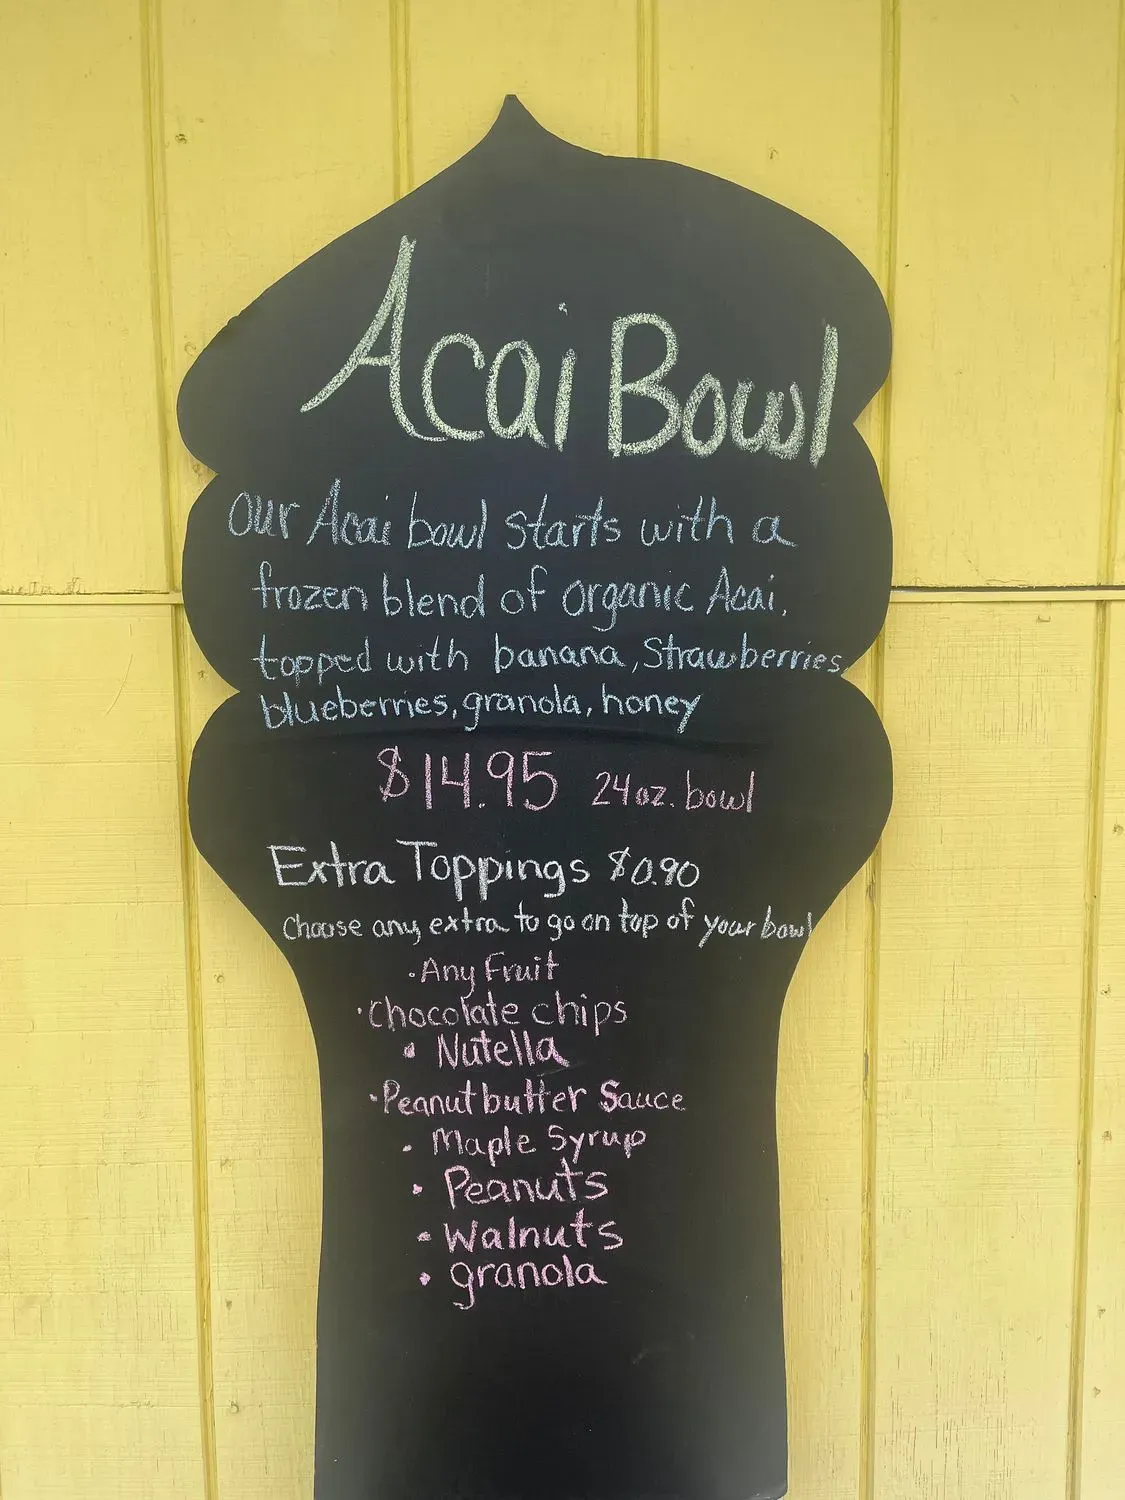 Acai Bowl
Our Acai bowl starts with a
frozen blend of organic Acai,
topped with banana, Strawberries,
blueberries, granola, honey
$14.95 24oz. bowl
Extra Toppings $0.90
Choose any extra to go on top of your bowl
· Any Fruit
· Chocolate chips
· Nutella
· Peanut butter Sauce
· Maple Syrup
· Peanuts
· Walnuts
· granola